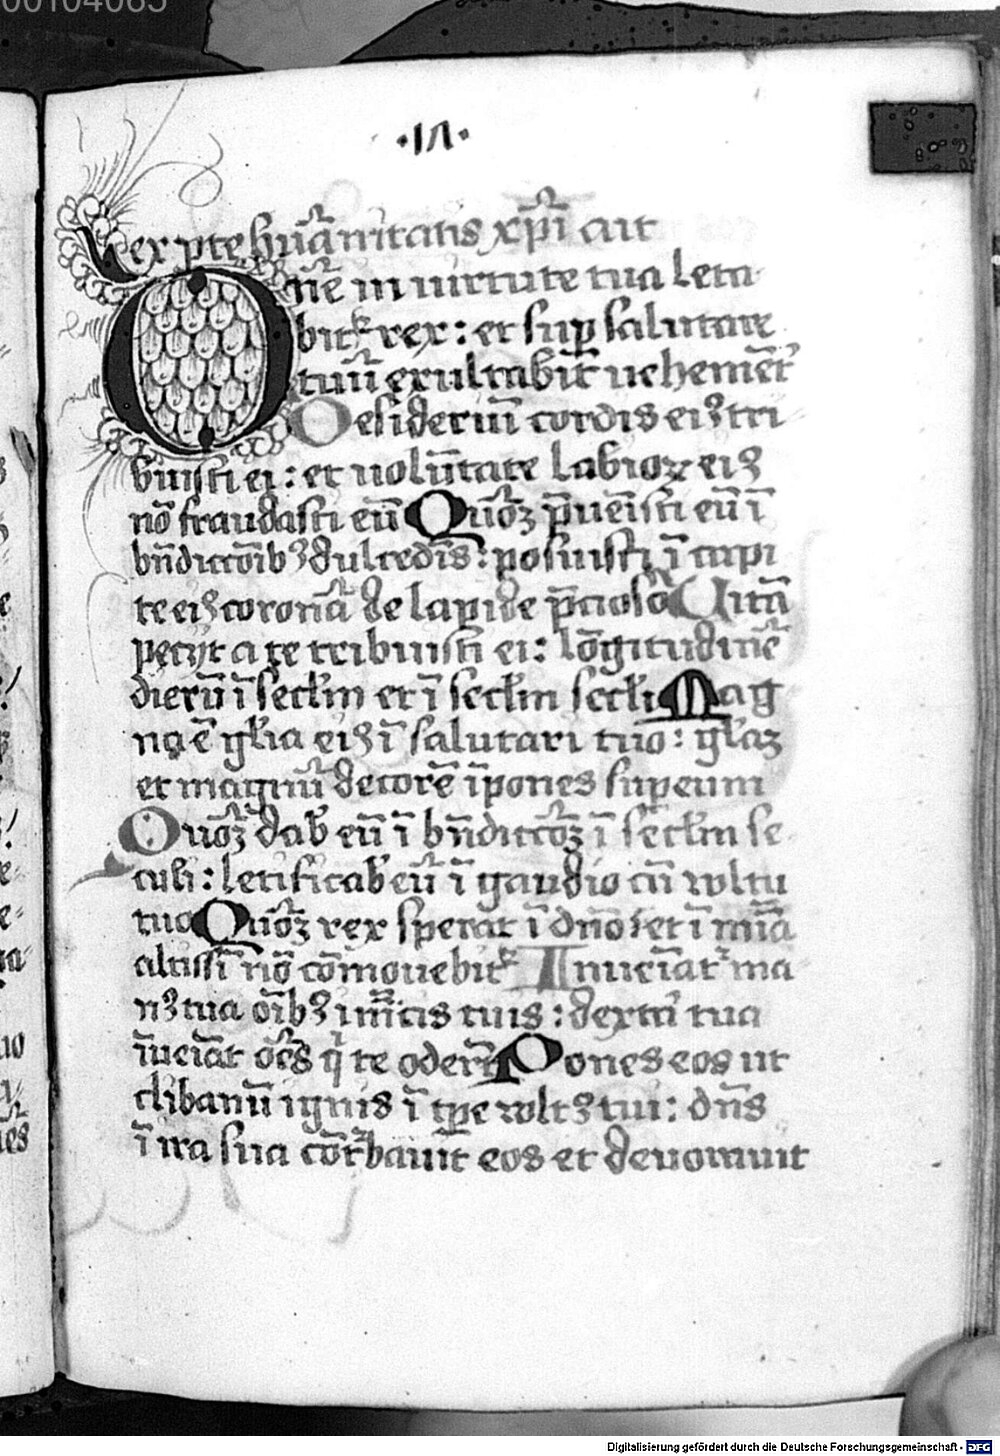 00104085
·17·
ex pte hūanitatis xp̄i ait
Dn̄e in uirtute tua leta
bit᷑ rex : et sup salutare
tuū exultabit uehemēt᷑
Desideriū cordis eiꝰ tri
buisti ei : et uolūtate labioꝝ eiꝰ
nō fraudasti eū Quō̄ꝫ p̄ueīsti eū ī
bn̄dictōibꝰ dulcedīs : posuisti ī capi
te eiꝰ coronā de lapide p̄cioso Uitā
peciit a te tribuisti ei : lōgitudinē
dierū ī sectm et ī sectm secti Mag
na ē gl̄ia eiꝰ ī salutari tuo : gl̄aꝫ
et magnū decorē īpones sup eum
Quōꝫ dab̄ eū ī bn̄dictōꝫ ī sectm se
culi : letificab̄ eū ī gaudio cū wltu
tuo Quōꝫ rex sperat ī dn̄o : et ī mīa
altissī nō cōmouebit᷑ Inueīat᷑ ma
nꝰ tua oībꝰ inīcis tuis : dext᷑a tua
īueīat oēs q̄ te odert̄ Pones eos ut
clibanū ignis ī tp̄e wltꝰ tui : dn̄s
ī ira sua cōt᷑bauit eos et deuorauit
Digitalisierung gefördert durch die Deutsche Forschungsgemeinschaft - DFG